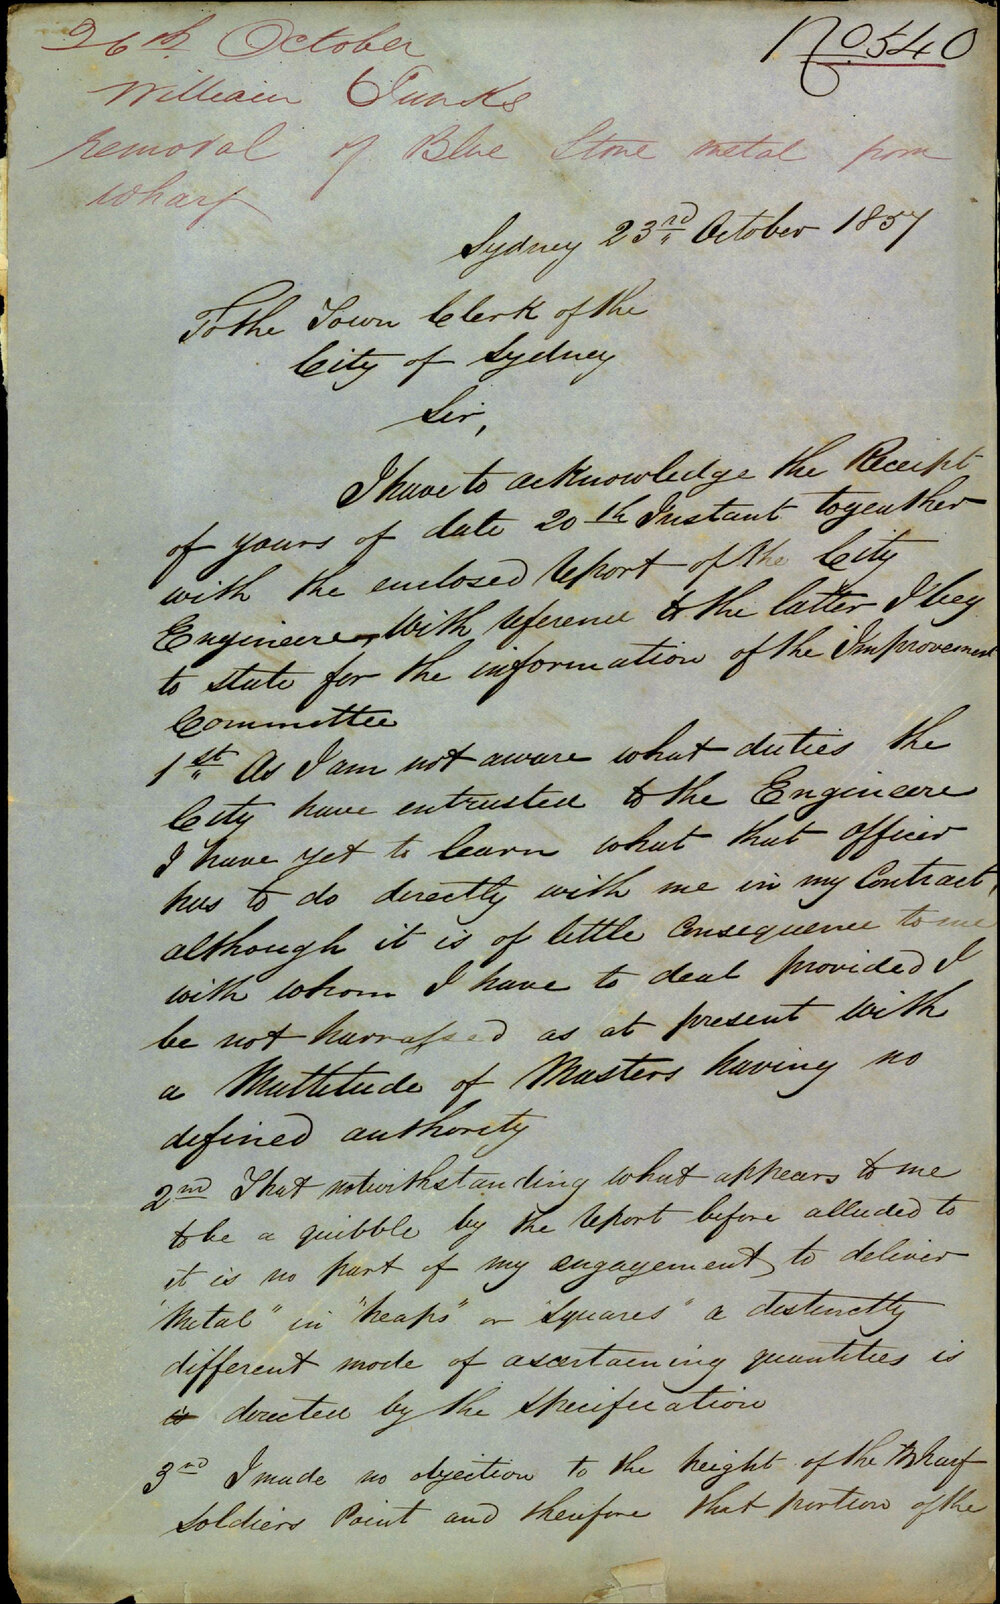 26th October
William Tunks
removal of Blue Stone metal from
wharf
No 540
Sydney 23rd October 1857
To the Town Clerk of the
City of Sydney
Sir,
I have to acknowledge the Receipt
of yours of date 20th Instant togeather
with the enclosed report of the City
Engineere, With reference to the latter I beg
to state for the information of the Improvement
Committee
1st As I am not aware what duties the
City have entrusted to the Engineere
I have yet to learn what that officer
has to do directly with me in my Contract
although it is of little Consequence to me
with whom I have to deal provided I
be not harrassed as at present with
a Multitude of Masters having no
defined authority
2nd That notwithstanding what appears to me
to be a quibble by the report before alluded to
it is no part of my engagement to deliver
"Metal" in "heaps" or "Squares" a distinctly
different mode of ascertaining quantities is
is directed by the Specification
3rd I made no objection to the height of the Wharf
Soldiers Point and therefore that portion of the